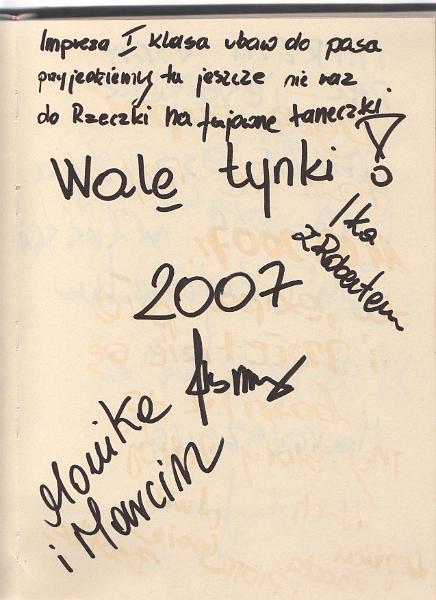 Impreza I klasa ubaw do pasa
przyjedziemy tu jeszcze nie raz
do Rzeczki na fajowne taneczki
Walę tynki!
Ika
z Robertem
2007
Monika
i Marcin